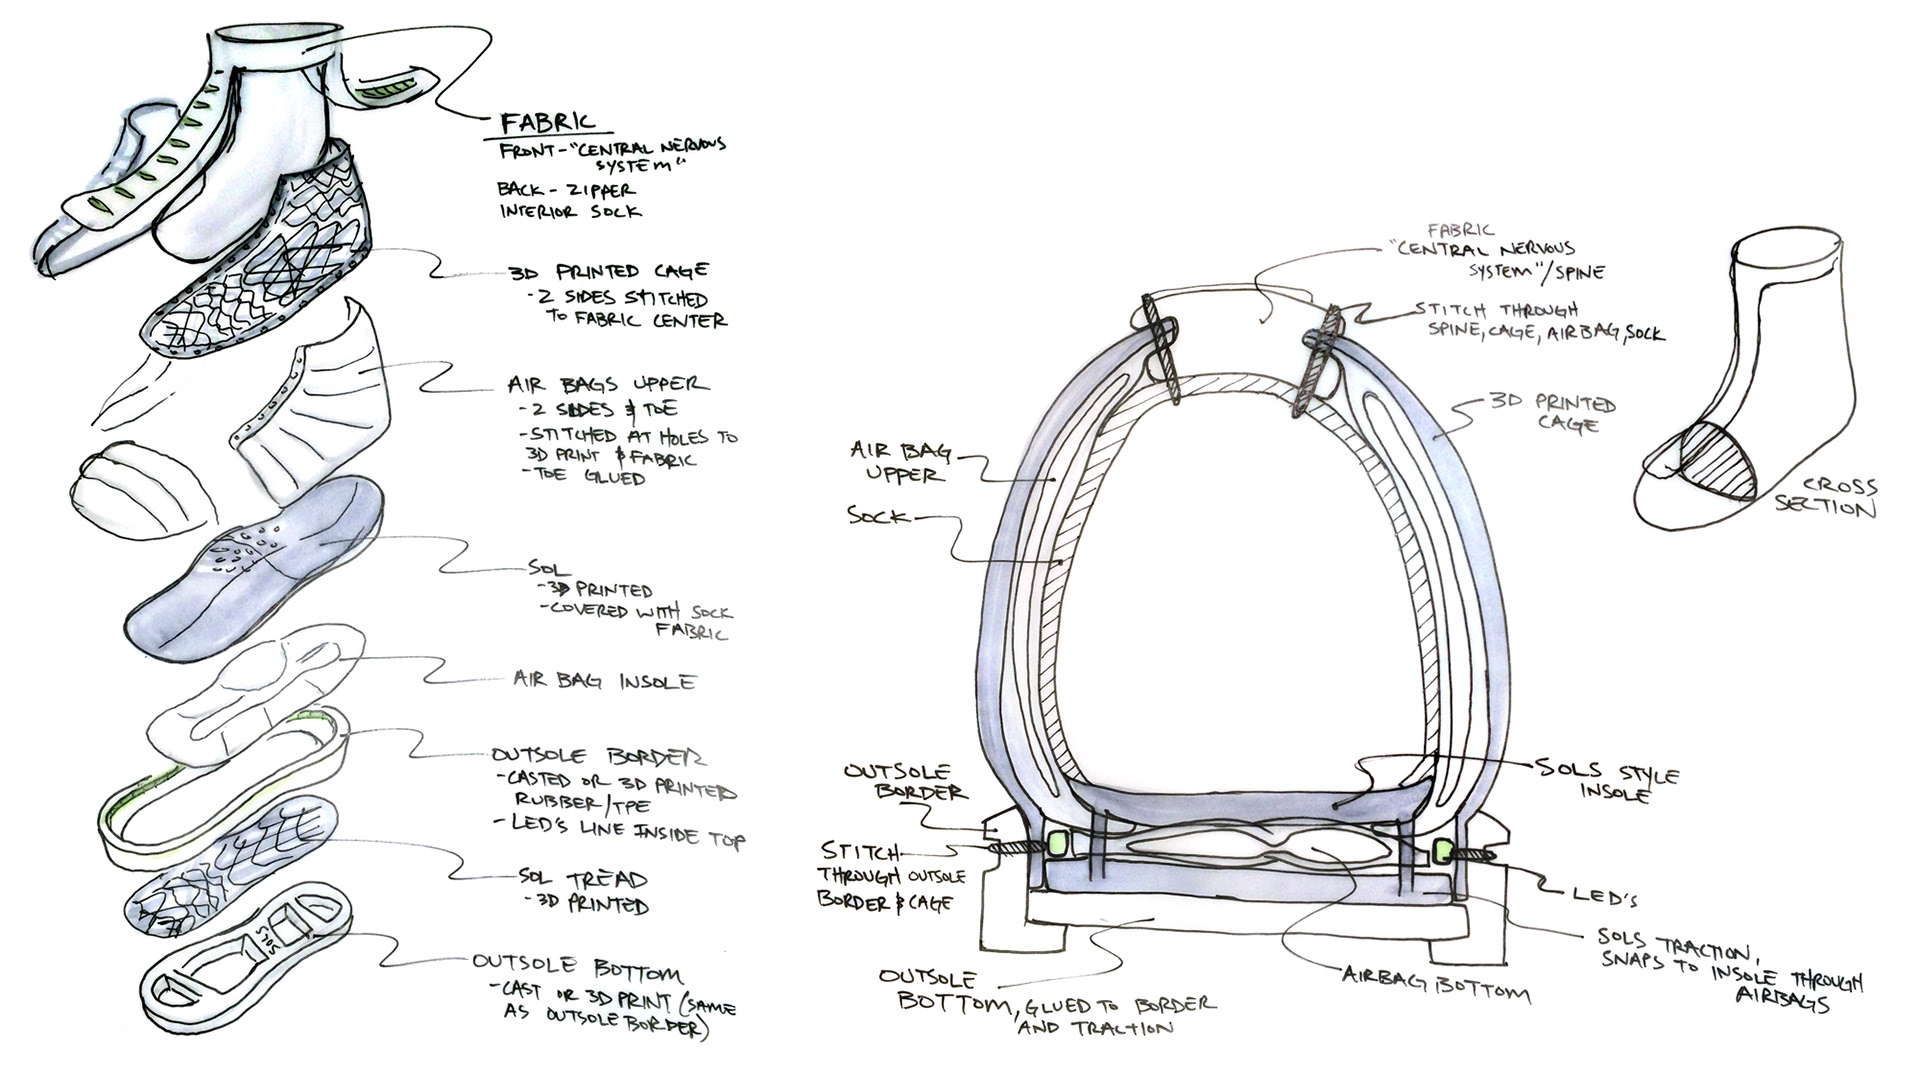 FABRIC
FRONT - "CENTRAL NERVOUS
SYSTEM"
BACK - ZIPPER
INTERIOR SOCK
3D PRINTED CAGE
- 2 SIDES STITCHED
TO FABRIC CENTER
AIR BAGS UPPER
- 2 SIDES & TOE
- STITCHED AT HOLES TO
3D PRINT & FABRIC
- TOE GLUED
SOL
- 3D PRINTED
- COVERED WITH SOCK
FABRIC
AIR BAG INSOLE
OUTSOLE BORDER
- CASTED OR 3D PRINTED
RUBBER/TPE
- LED'S LINE INSIDE TOP
SOL TREAD
- 3D PRINTED
SOLS
OUTSOLE BOTTOM
- CAST OR 3D PRINT (SAME
AS OUTSOLE BORDER)
FABRIC
"CENTRAL NERVOUS
SYSTEM"/SPINE
STITCH THROUGH
SPINE, CAGE, AIRBAG, SOCK
3D PRINTED
CAGE
AIR BAG
UPPER
SOCK
CROSS
SECTION
OUTSOLE
BORDER
STITCH
THROUGH OUTSOLE
BORDER & CAGE
SOLS STYLE
INSOLE
LED'S
SOLS TRACTION,
SNAPS TO INSOLE THROUGH
AIRBAGS
AIRBAG BOTTOM
OUTSOLE
BOTTOM, GLUED TO BORDER
AND TRACTION